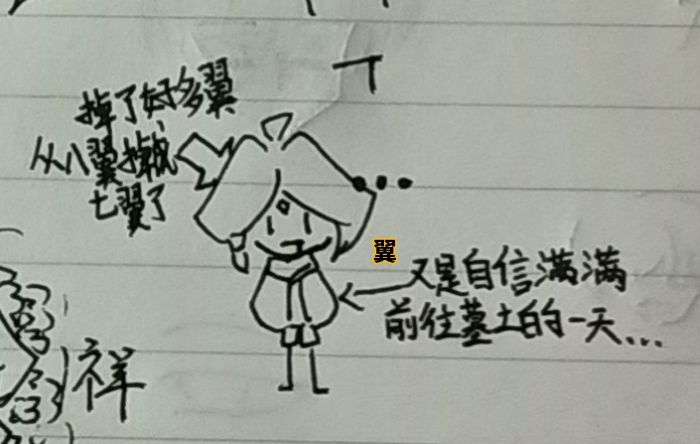 掉了好多翼
从八翼掉成
七翼了
翼
又是自信满满
前往墓土的一天...
祥